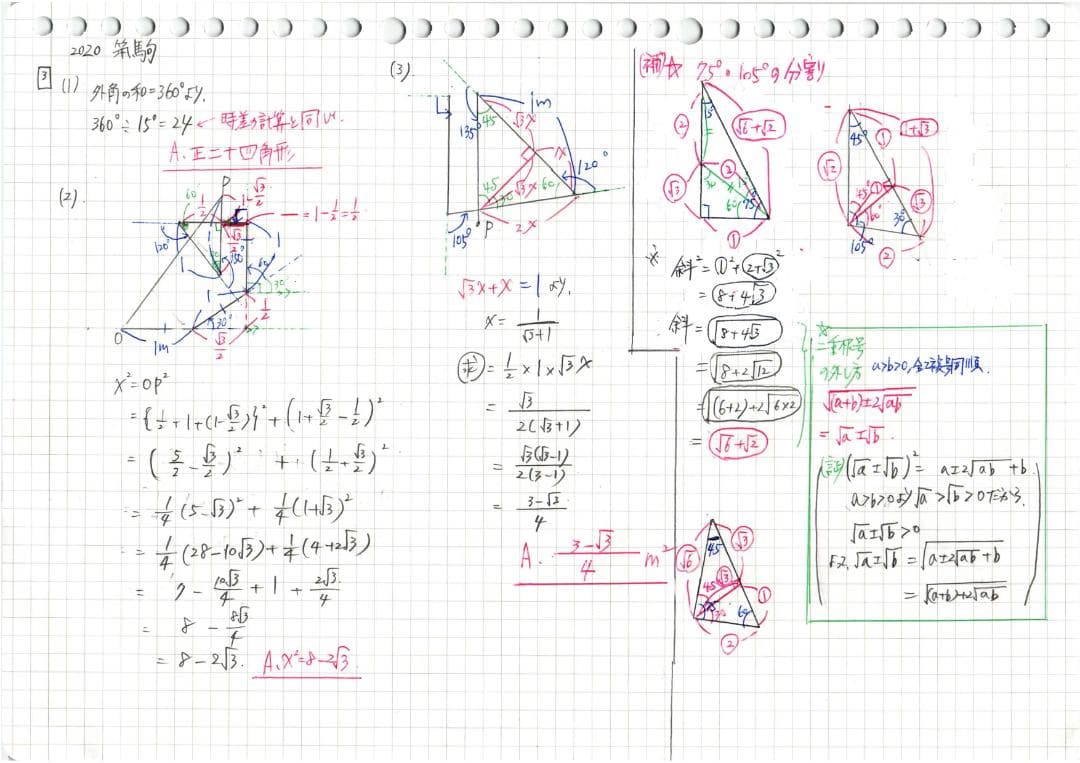 2020 筑駒
3 (1)
外角の和=360°より、
360°÷15°=24 ← 時差の計算と同じ
A. 正二十四角形
(2)
P
60
1/2
1-√3/2
—=1-1/2=1/2
√3/2
120°
150°
1
1
60
30
1
1/2
30°
O
1m
√3/2
x²=OP²
={1/2+1+(1-√3/2)}²+(1+√3/2-1/2)²
=(5/2-√3/2)²+(1/2+√3/2)²
=1/4(5-√3)²+1/4(1+√3)²
=1/4(28-10√3)+1/4(4+2√3)
=7-10√3/4+1+2√3/4
=8-8√3/4
=8-2√3.
A. x²=8-2√3
(3).
1m
135°
45
√3x
x
120°
45
√3x
60
30
105°
P
2x
√3x+x=1より、
x=1/(√3+1)
求=1/2×1×√3x
=√3/(2(√3+1))
=√3(√3-1)/(2(3-1))
=(3-√3)/4
A. (3-√3)/4 m²
(補)☆ 75°・105°の分割
15
②
√6+√2
②
√3
30
15
60
75
①
45°
①
1+√3
√2
45°
①
√3
60°
30°
105°
②
※ 斜²=①²+(2+√3)²
=8+4√3
斜=√(8+4√3)
=√(8+2√12)
=√((6+2)+2√(6×2))
=√6+√2
☆
二重根号
の外し方 a>b>0,
√((a+b)±2√ab)
=√a±√b.
(証)(√a±√b)²=a±2√ab+b
a>b>0より√a>√b>0だから、
√a±√b>0
よって、√a±√b=√(a±2√ab+b)
=√((a+b)±2√ab)
45
√6
√3
45
√3
①
75
30
60
②